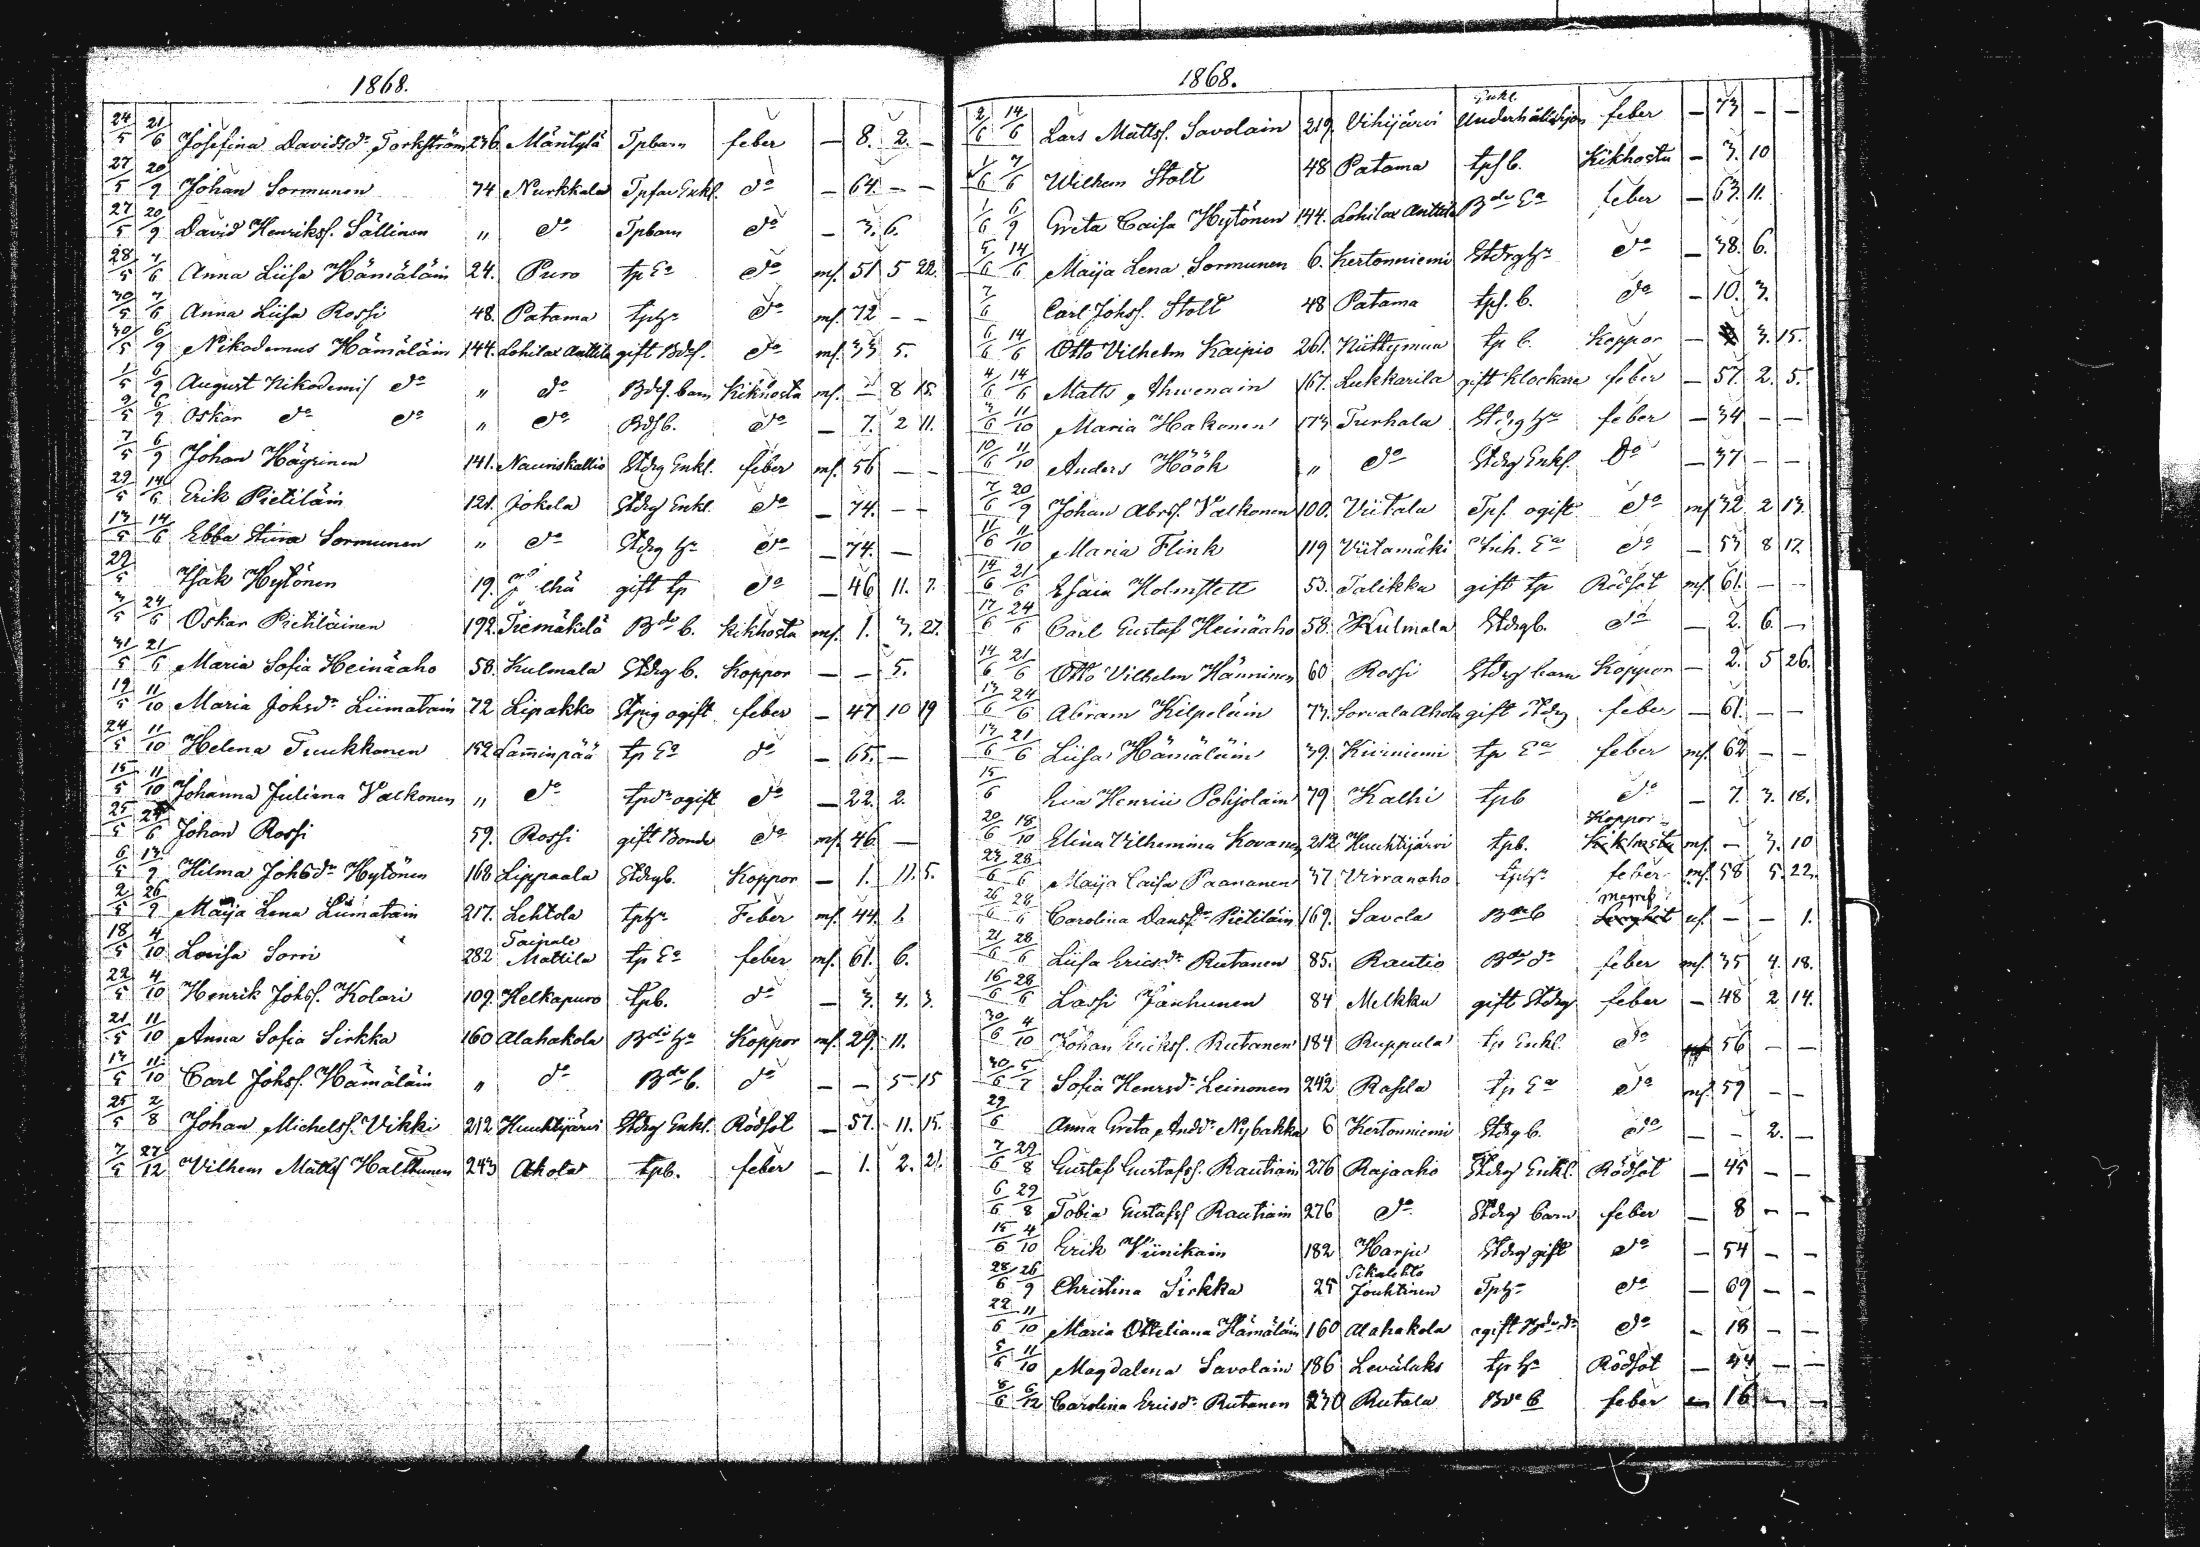 1868.
24/5 21/6 Josefina Davidsdr Torkström 236. Mäntylä Tpbarn feber — 8. 2. —
27/5 20/9 Johan Sormunen 74 Nurkkala Tpfar Enkl. do — 64. — —
27/5 20/9 David Henrikss. Sällinen " do Tpbarn do — 3. 6.
28/5 7/6 Anna Liisa Hämäläin 24. Puro tp Ea do mf. 51 5 22.
30/5 7/6 Anna Liisa Rossi 48. Patama tphu do mf. 72 — —
30/5 6/9 Nikodemus Hämäläin 144. Lohilax Anttila gift Bdes. do mf. 33 5.
1/5 6/9 August Nikodemiss do " do Bdes. barn Kikhosta mf. — 8 15.
2/5 6/9 Oskar do do " do Bdsb. do — 7. 2 11.
7/5 6/9 Johan Häyrinen 141. Nauriskallio Stdrg Enkl. feber mf. 56 — —
29/5 14/6 Erik Pietiläin 121. Jokela Stdrg Enkl. do — 74. — —
13/5 14/6 Ebba Stina Sormunen " do Stdrg hu do — 74. —
29/5 Isak Hytönen 19. gift tp do — 46 11. 7.
3/5 24/6 Oskar Pietiläinen 192. Tiemäkilä Bde b. Kikhosta mf. 1. 3. 27.
31/5 21/6 Maria Sofia Heinäaho 58. Kulmala Stdrg b. Koppor — — 5.
19/5 11/10 Maria Johsdr Liimatain 72 Lipakko Stpig ogift feber — 47 10 19
24/5 11/10 Helena Tuukkanen 152 Lam̄inpää tp Ea do — 65. —
15/5 11/10 Johanna Juliana Valkonen " do tpdr ogift do — 22. 2.
25/5 24/6 Johan Rossi 59. Rossi gift Bonde do mf. 46. —
6/5 13/9 Hilma Johsdr Hytönen 168 Lippaala Stdrgb. Koppor — 1. 11. 5.
2/5 26/9 Maija Lena Liimatain 217. Lehtola tphu Feber mf. 44. 1.
18/5 4/10 Lovisa Sorri 282 Taipale Mattila tp Ea feber mf. 61. 6.
22/5 4/10 Henrik Johss. Kolari 109. Helkapuro tpb. do — 3. 3. 3.
21/5 11/10 Anna Sofia Sirkka 160 Alahakola Bde hu Koppor mf. 29. 11.
13/5 11/10 Carl Johss. Hämäläin " do Bde b. do — — 5 15
25/5 2/8 Johan Michelss. Vikki 212 Huuhtijärvi Stdrg Enkl. Rödsot — 57. 11. 15.
7/5 27/12 Vilhem Mattss Halttunen 243 Ahola tpb. feber — 1. 2. 21.
1868.
2/6 14/6 Lars Mattss. Savolain 219. Vihijärvi Enkl. Underhållshjon feber — 73 — —
1/6 7/6 Wilhem Stolt 48 Patama tpsb. Kikhosta — 3. 10
1/6 6/9 Greta Caisa Hytönen 144. Lohilax Anttila Bde Ea feber — 63. 11.
5/6 14/6 Maija Lena Sormunen 6. Kertonniemi Stdrghu do — 38. 6.
7/6 Carl Johss. Stolt 48 Patama tps. b. do — 10. 3.
6/6 14/6 Otto Vilhelm Kaipio 261. Niittymaa tp b. Koppor — 3. 15.
4/6 14/6 Matts Ahvenain 167. Lukkarila gift Klockare feber — 57. 2. 5.
3/6 11/10 Maria Hakonen 173 Turhala Stdrg hu feber — 34 — —
10/6 11/10 Anders Höök " do Stdrg Enkl. Do — 37 — —
7/6 20/9 Johan Abrss. Valkonen 100. Viitala Tps. ogift do mf 32 2 13.
11/6 11/10 Maria Flink 119 Viitamäki Inh. Ea do — 53 8 17.
14/6 21/6 Esaia Holmstett 53. Talikka gift tp Rödsot mf. 61. — —
17/6 24/6 Carl Gustaf Heinäaho 58. Kulmala Stdrgb. do — 2. 6. —
14/6 21/6 Otto Vilhelm Hänninen 60 Rossi Stdrg barn Koppor — 2. 5 26.
13/6 24/6 Abram Kilpeläin 73. Sorvala Ahola gift Stdrg feber — 61. — —
13/6 21/6 Liisa Hämäläin 39. Kiiniemi tp Ea feber mf. 62 — —
15/6 Eva Henrii Pohjolain 79 Kalhi tpb do — 7. 3. 18.
20/6 18/10 Elina Vilhemina Kovanen 212. Huuhtijärvi tpb. Koppor Kikhosta mf. — 3. 10
23/6 28/6 Maija Caisa Paananen 37 Virranaho tphu feber mf. 58 5. 22.
26/6 28/6 Carolina Danssdr Pietiläin 169. Savola Bde b magref mf. — — 1.
21/6 28/6 Liisa Ericsdr Rutanen 85. Rautio Bde dr feber mf. 35 4. 18.
16/6 28/6 Lassi Janhunen 84 Melkku gift Stdrg feber — 48 2 14.
30/6 4/10 Johan Erikss. Rutanen 184 Ruppula tp Enkl. do mf 56 — —
30/6 5/7 Sofia Henrsdr Leinonen 242 Rasila tp Ea do mf. 59 — —
29/6 Anna Greta Andsdr Nybakka 6 Kertonniemi Stdrg b. do — — 2. —
7/6 29/8 Gustaf Gustafss. Rautiain 276 Rajaaho Stdrg Enkl. Rödsot — 45 — —
6/6 29/8 Tobia Gustafss Rautiain 276 do Stdrg barn feber — 8 — —
15/6 4/10 Erik Viinikain 182 Harju Stdrg gift do — 54 — —
28/6 26/9 Christina Sirkka 25 Sikalehto Jouhtinen Tphu do — 69 — —
22/6 11/10 Maria Otteliana Hämäläin 160 Alahakola ogift Bdedr do — 18 — —
5/6 11/10 Magdalena Savolain 186 Leväluks tp hu Rödsot — 44 — —
8/6 6/12 Carolina Ericsdr Rutanen 230 Rutala Bde b feber — 16 — —